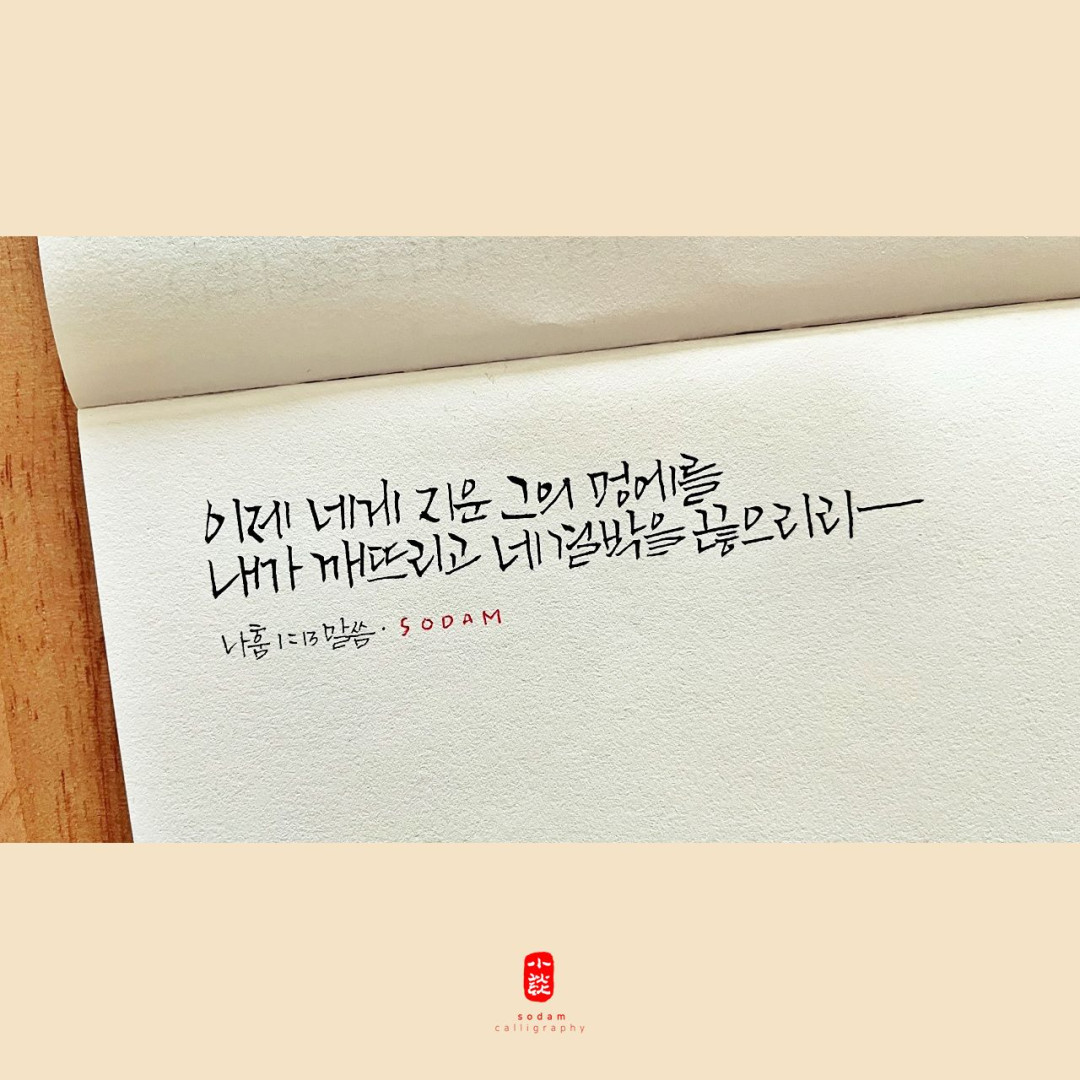 이제 네게 지운 그의 멍에를
내가 깨뜨리고 네 결박을 끊으리라
나훔 1:13 말씀. SODAM
小談
sodam
calligraphy